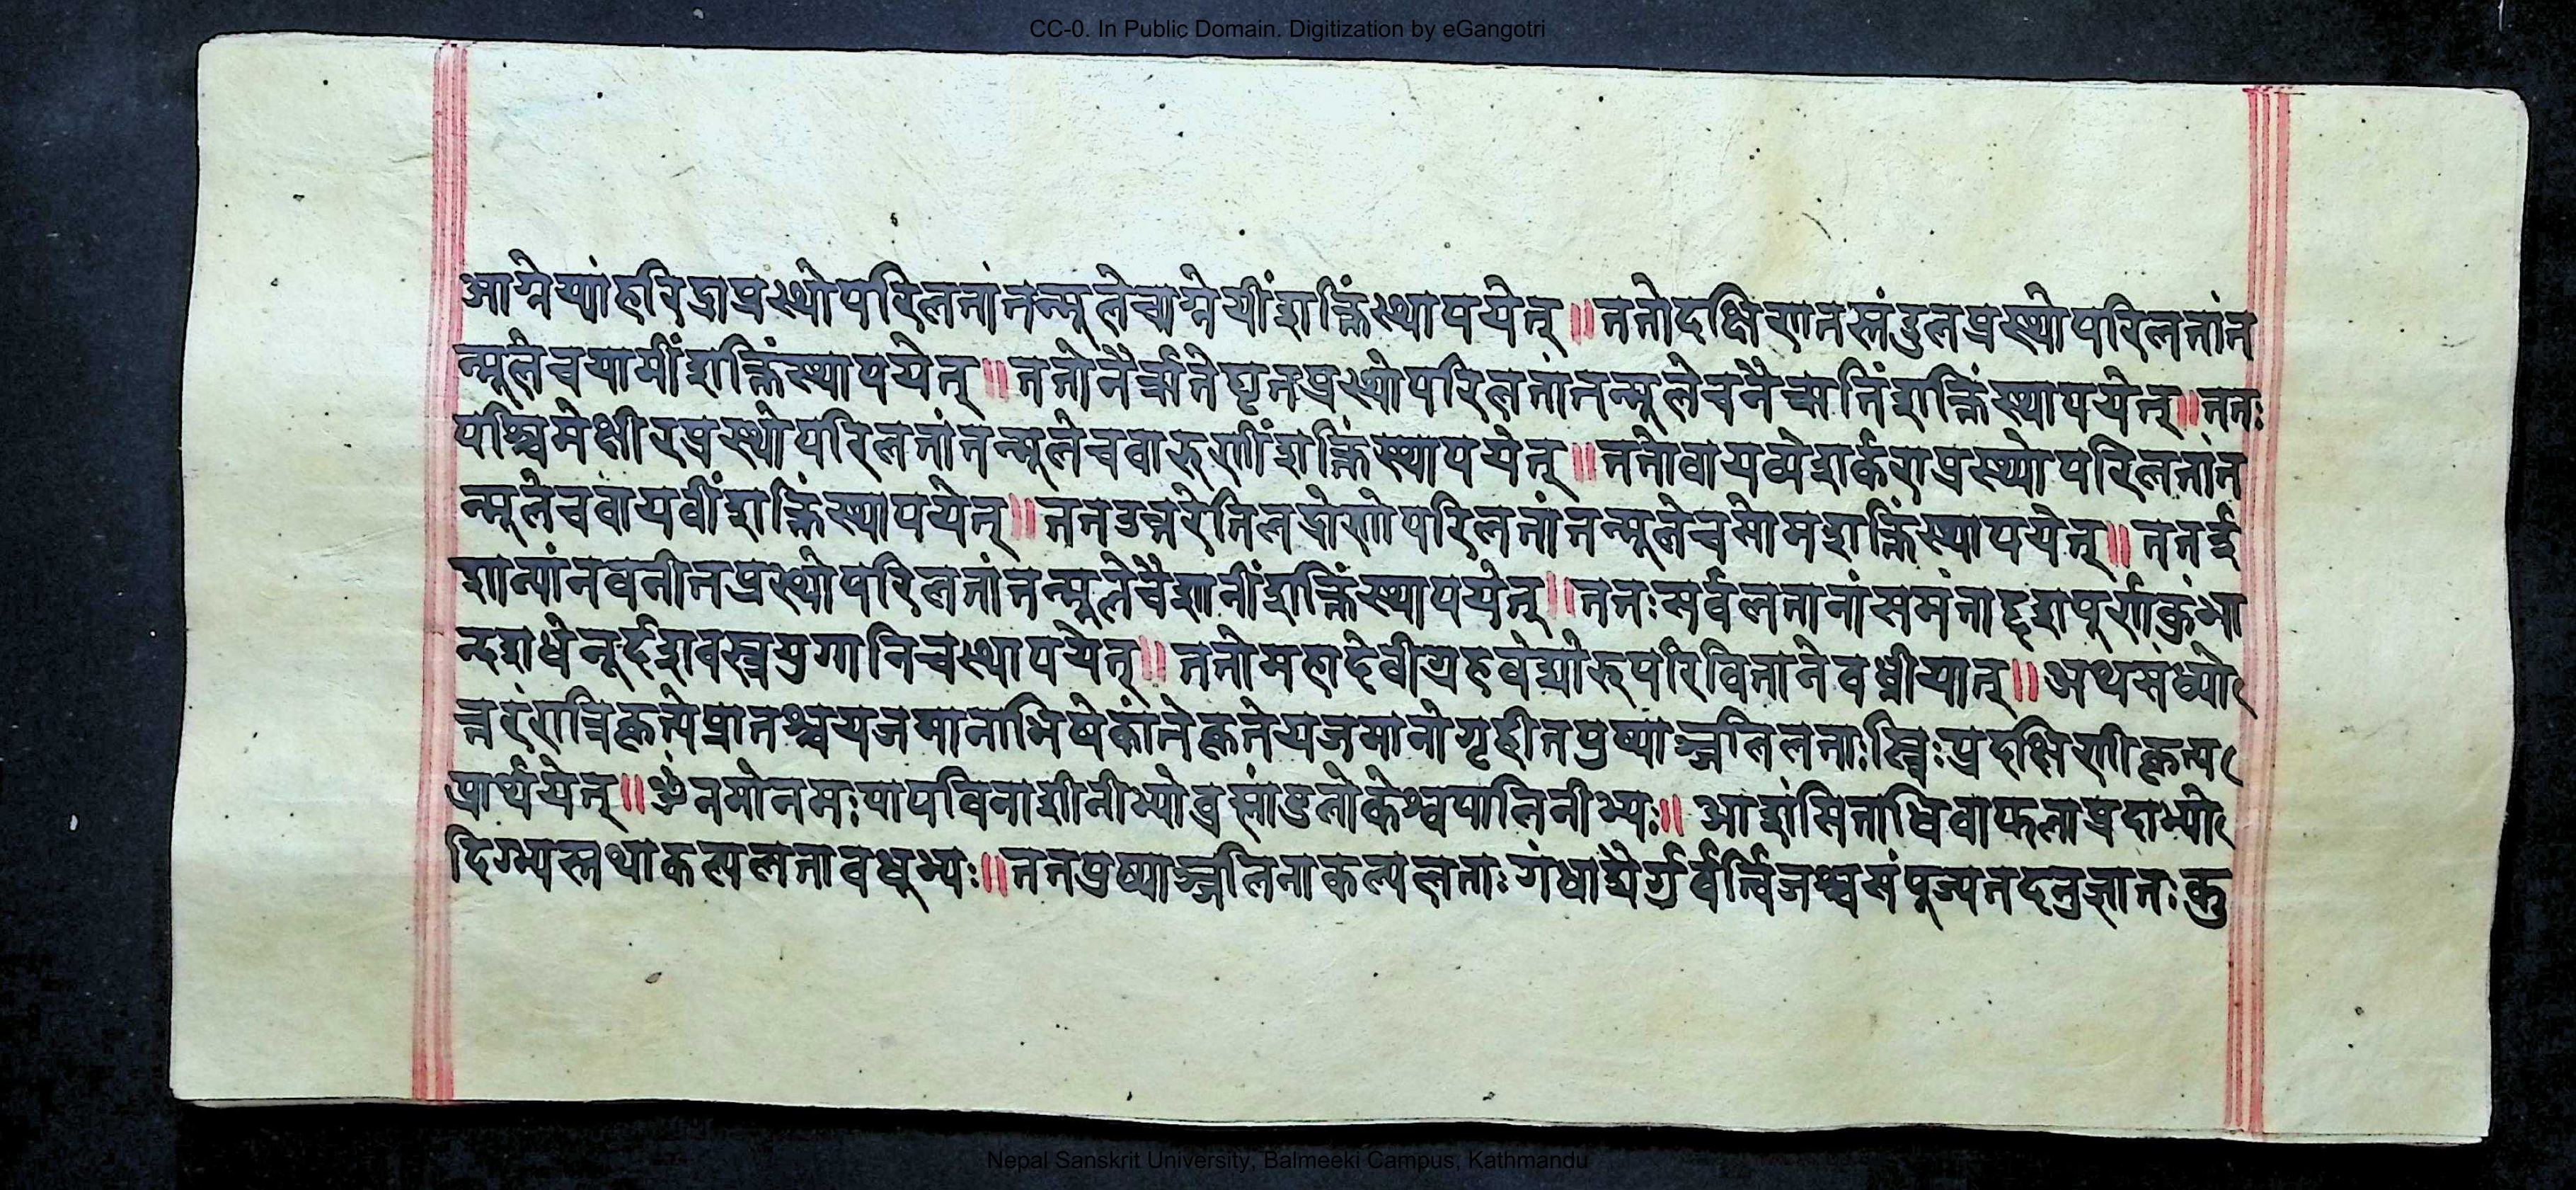 CC-0. In Public Domain. Digitization by eGangotri
आग्नेय्यांहरिद्राप्रस्थोपरिलतांतन्मूलेचाग्नेयींशक्तिंस्थापयेत्॥ततोदक्षिणतस्तंडुलप्रस्थोपरिलतांत
न्मूलेचयामींशक्तिंस्थापयेत्॥ततोनैर्ऋतेघृतप्रस्थोपरिलतांतन्मूलेचनैऋतिंशक्तिंस्थापयेत्॥ततः
पश्चिमेक्षीरप्रस्थोपरिलतांतन्मूलेचवारुणींशक्तिंस्थापयेत्॥ततोवायव्येशर्कराप्रस्थोपरिलतांत
न्मूलेचवायवींशक्तिंस्थापयेत्॥ततउत्तरेतिलद्रोणोपरिलतांतन्मूलेचसोमशक्तिंस्थापयेत्॥ततई
शान्यांनवनीतप्रस्थोपरिलतांतन्मूलेचैशानींशक्तिंस्थापयेत्॥ततःसर्वलतानांसमंताद्दशपूर्णकुंभा
न्दशधेनूर्दशवस्त्रयुगानिचस्थापयेत्॥ततोमहादेवीग्रहवेद्योरुपरिवितानेवध्नीयात्॥अथसंध्यो
त्तरंरात्रिकृत्येप्रातश्चयजमानाभिषेकांतेकृतेयजमानोगृहीतपुष्पाञ्जलिलताःस्त्रिःप्रदक्षिणीकृत्य
प्रार्थयेत्॥ॐनमोनमःपापविनाशीनीभ्योब्रह्मांडलोकेश्वपालिनीभ्यः॥आशंसिताधिवाफलाप्रदाभ्यो
दिग्भ्यस्तथाकल्पलतावधूभ्यः॥ततपुष्पाञ्जलिनाकल्पलताःगंधाद्यैर्गुर्वर्त्विजश्चसंपूज्यतदनुज्ञातःकु
Nepal Sanskrit University, Balmeeki Campus, Kathmandu